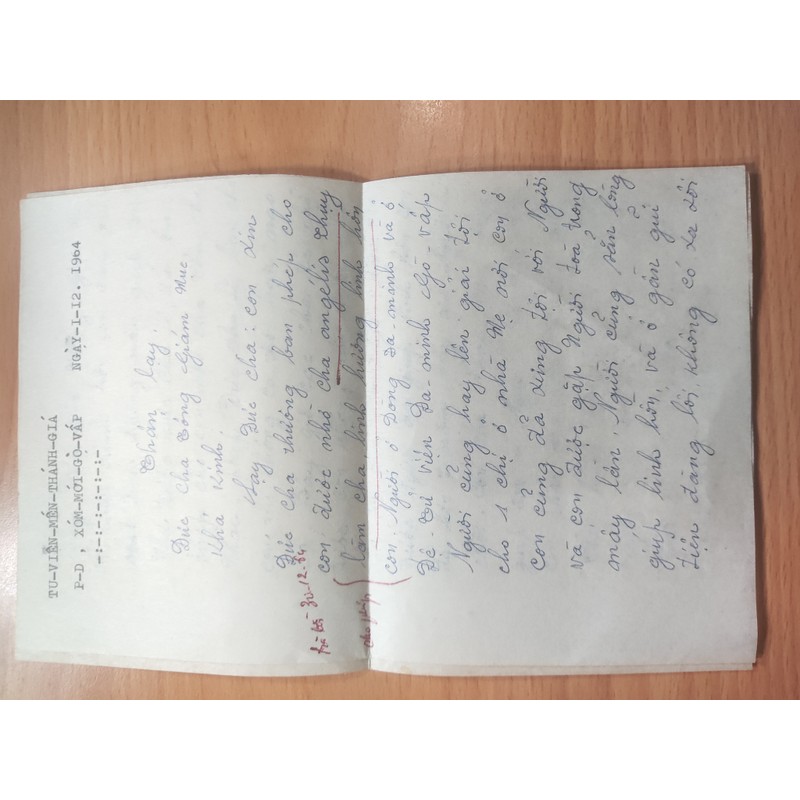 TU-VIỄN-MẾN-THÁNH-GIÁ
P-D , XÓM-MỚI-GÒ-VẤP NGÀY-1-12. 1964
-:-:-:-:-:-:-
Thán lạy.
Đức cha tổng Giám Mục
Khả Kính.
Lạy Đức cha: con xin
Đức cha thương ban phép cho-
con được nhờ cha angélis Thụy
làm cha linh hướng linh hồn
con. Người ở Dòng Đa-manh và ở
Đệ-tử viện Đa-minh Gò-vấp
Người cũng hay lên giải tội
cho 1 chị ở nhà Mẹ nời con ở
con cũng đã xưng tội với Người
và con được gặp Người toà trong
mấy lần. Người cũng sẵn lòng
giúp linh hồn, và ở gần gũi
tiện đàng lối, không có xa xôi
trả lời 30-12-64
cho phép